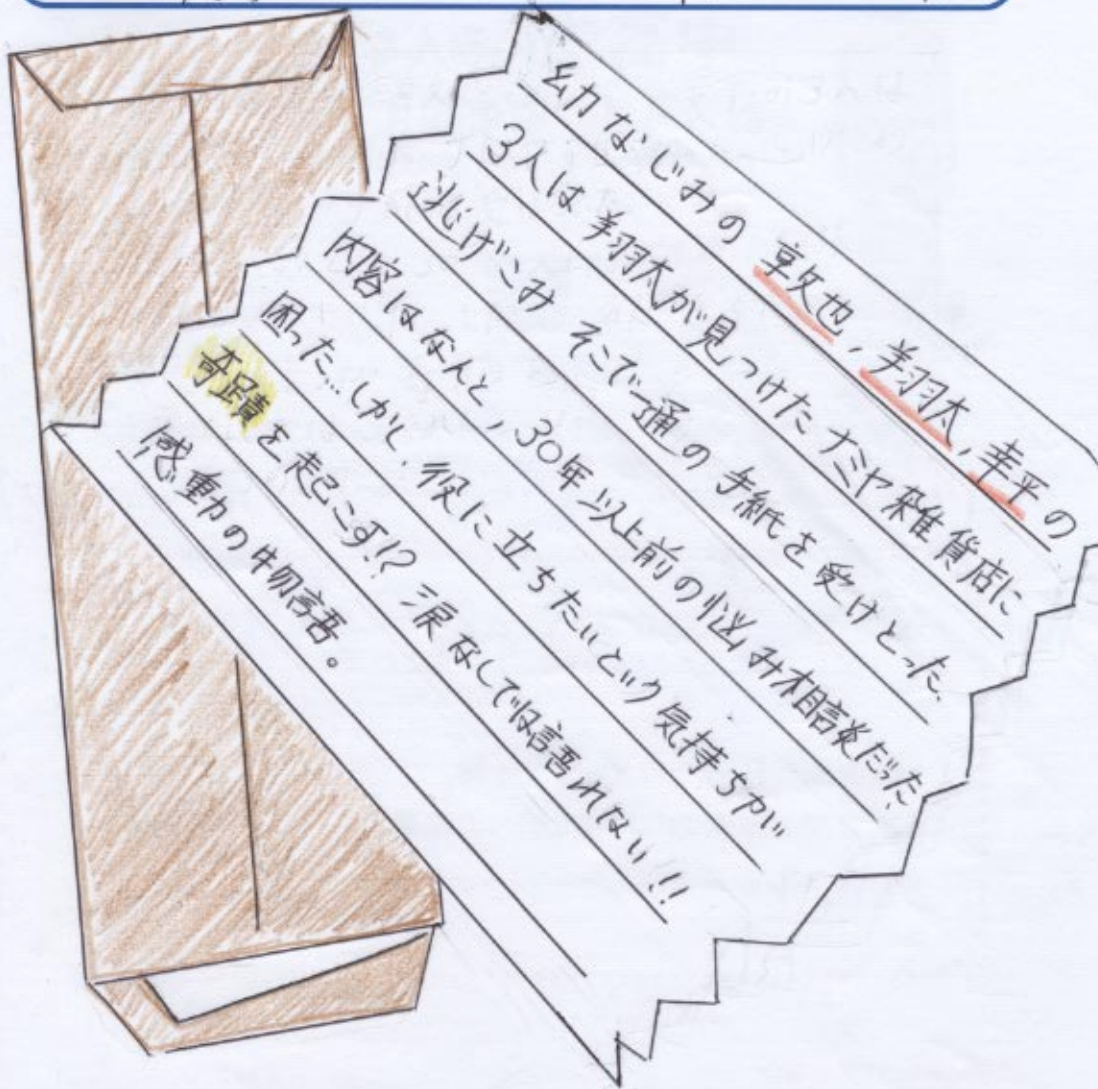 幼なじみの 享矢也, 羊羽太, 幸平の
3人は 羊羽太が見つけたナミヤ雑貨店に
逃げこみ そこで一通の手紙を受けとった、
内容はなんと, 30年以上前の悩み相談だった、
困った…しかし、役に立ちたいという気持ちが
奇蹟を起こす!? 涙なしでは語れない!!
感動の物語。